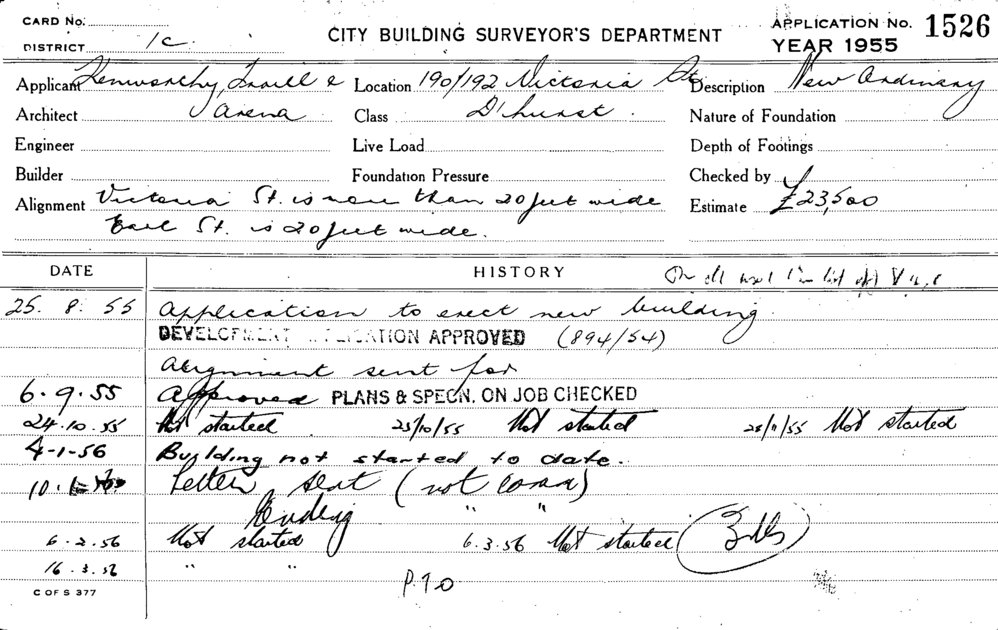 CARD No. CITY BUILDING SURVEYOR'S DEPARTMENT APPLICATION No. 1526
DISTRICT 1C YEAR 1955
Applicant Kenworthy Location 190/192 Victoria St. Description New Ordinary
Architect Class D'hurst Nature of Foundation
Engineer Live Load Depth of Footings
Builder Foundation Pressure Checked by
Alignment Victoria St. is more than 20 feet wide Estimate £23,500
Earl St. is 20 feet wide.
DATE HISTORY
25. 8. 55 Application to erect new building.
DEVELOPMENT APPLICATION APPROVED (894/54)
Alignment sent for
6. 9. 55 Approved PLANS & SPECN. ON JOB CHECKED
24.10.55 Not started 25/10/55 Not started 28/11/55 Not started
4-1-56 Building not started to date.
10. Letter sent (not comm)
Ending " "
6.2.56 Not started 6.3.56 Not started
16.3.56 " "
P.T.O
C OF S 377